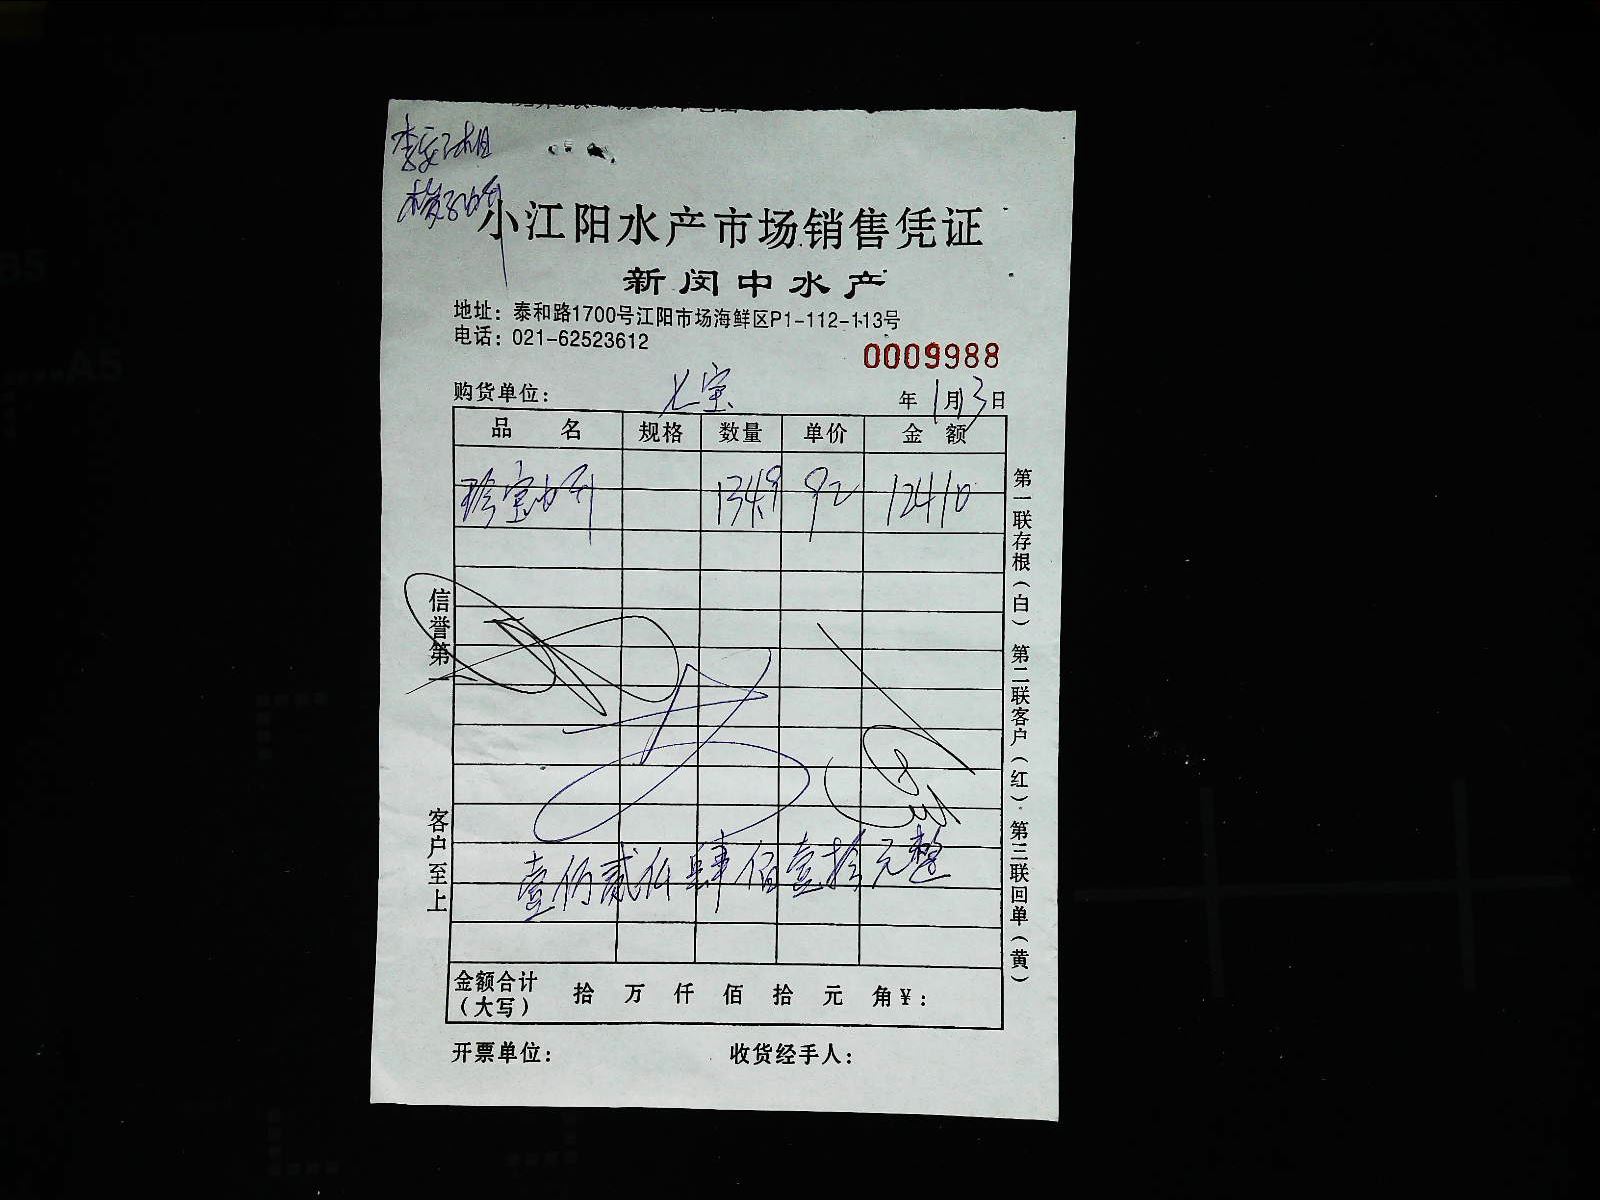 小江阳水产市场销售凭证
新闵中水产
地址：泰和路1700号江阳市场海鲜区P1-112-113号
电话：021-62523612
0009988
购货单位：七宝 年1月13日
品 名 规格 数量 单价 金 额
珍宝 134.9 92 12410
壹万贰仟肆佰壹拾元整
金额合计（大写） 拾 万 仟 佰 拾 元 角￥：
开票单位： 收货经手人：
信誉第一
客户至上
第一联存根（白） 第二联客户（红） 第三联回单（黄）